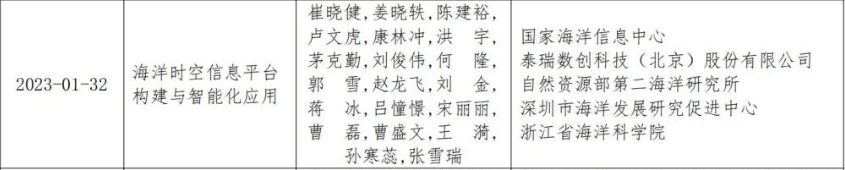 2023-01-32
海洋时空信息平台
构建与智能化应用
崔晓健,姜晓轶,陈建裕,
卢文虎,康林冲,洪 宇,
茅克勤,刘俊伟,何 隆,
郭 雪,赵龙飞,刘 金,
蒋 冰,吕憧憬,宋丽丽,
曹 磊,曹盛文,王 漪,
孙寒蕊,张雪瑞
国家海洋信息中心
泰瑞数创科技（北京）股份有限公司
自然资源部第二海洋研究所
深圳市海洋发展研究促进中心
浙江省海洋科学院